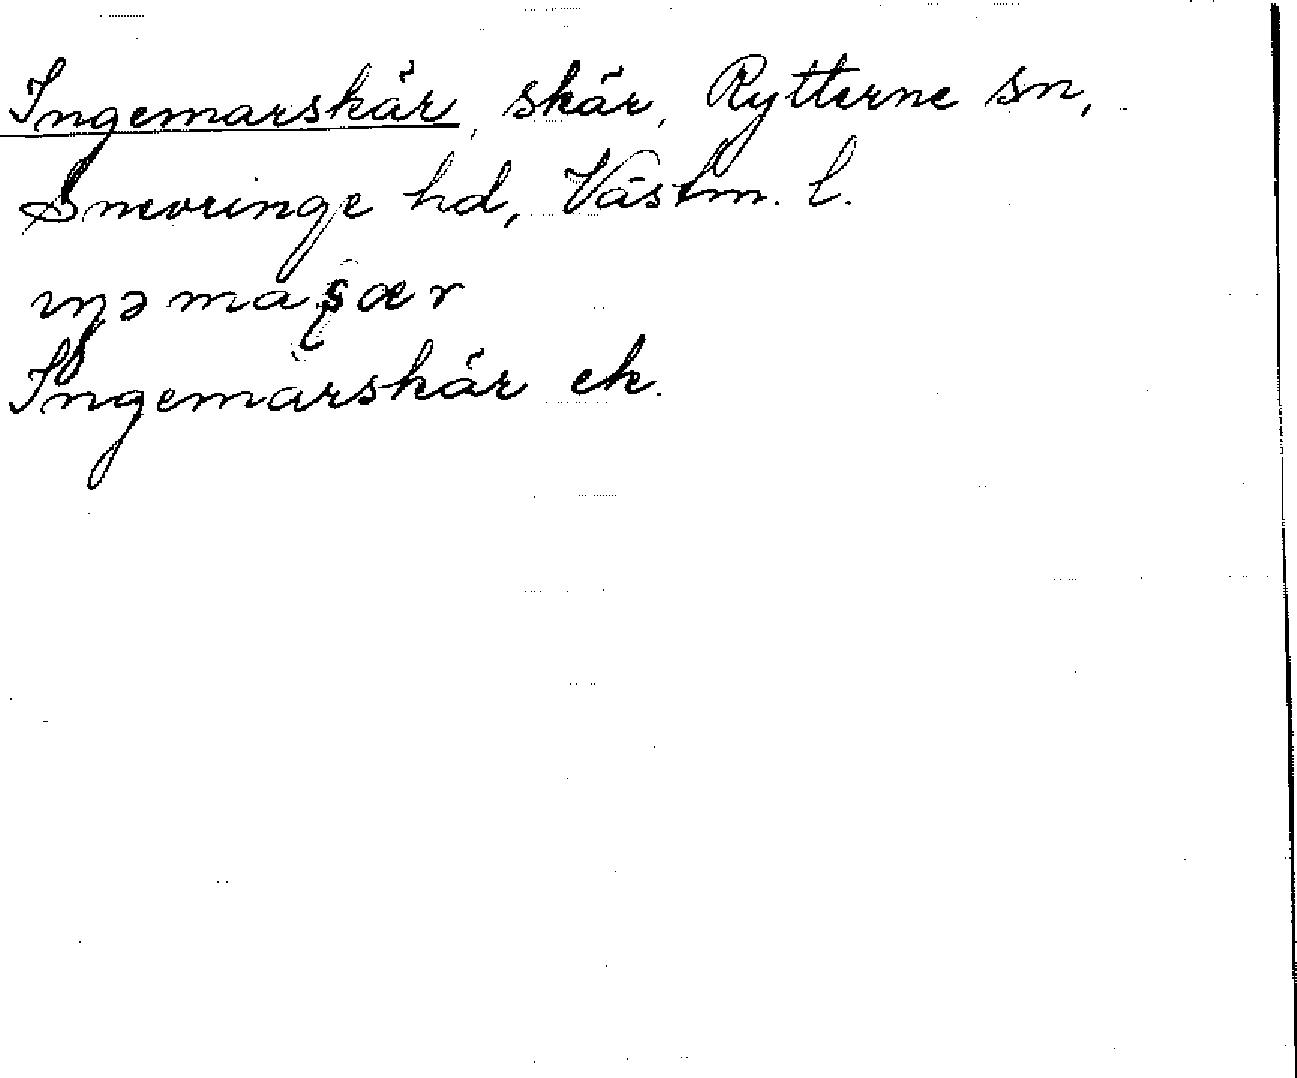 Ingemarskär, skär, Rytterne sn,
Snevringe hd, Västm. l.
Ingemarskär ek.